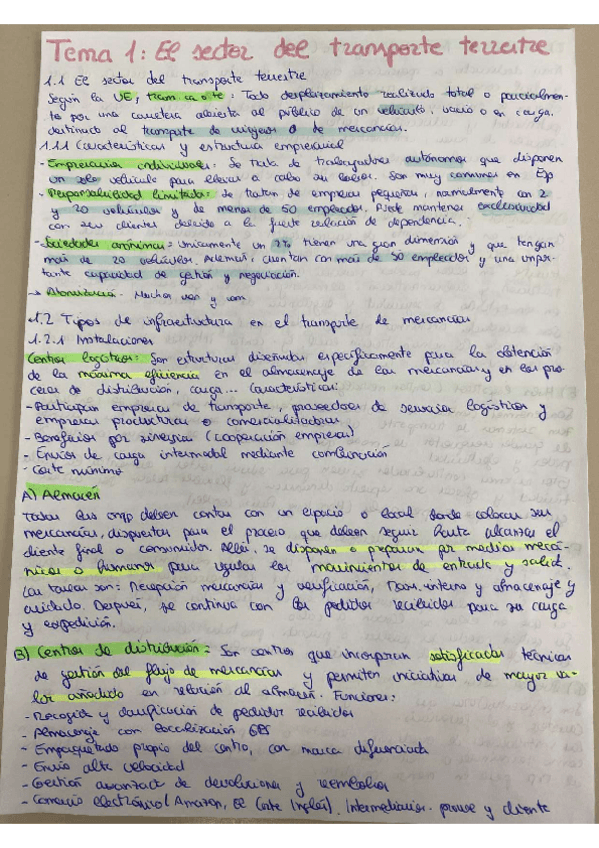 Tema 1: El sector del transporte terrestre
1.1 El sector del transporte terrestre
Según la UE, trans. ca o te: Todo desplazamiento realizado total o parcialmen-
te por una carretera abierta al público de un vehículo, vacío o en carga,
destinado al transporte de viajeros o de mercancías.
1.1.1 Características y estructura empresarial
- Empresarios individuales: Se trata de trabajadores autónomos que disponen
un solo vehículo para llevar a cabo su labor. Son muy comunes en Esp
- Responsabilidad limitada: Se tratan de empresas pequeñas, normalmente con 2
y 20 vehículos y de menos de 50 empleados. Puede mantener exclusividad
con sus clientes debido a la fuerte relación de dependencia.
- Sociedades anónimas: Unicamente un 2% tienen una gran dimensión y que tengan
más de 20 vehículos. Además, cuentan con más de 50 empleados y una impor-
tante capacidad de gestión y negociación.
→ Atomización. Muchas van y vom
1.2 Tipos de infraestructura en el transporte de mercancías
1.2.1 Instalaciones
Centros logísticos: Son estructuras diseñadas específicamente para la obtención
de la máxima eficiencia en el almacenaje de las mercancías y en los pro-
cesos de distribución, carga... Características:
- Participan empresas de transporte, proveedores de servicios logísticos y
empresas productoras o comercializadoras
- Beneficios por sinergia (cooperación empresas)
- Envíos de carga intermodal mediante combinación
- Coste mínimo
A) Almacén
Todas las emp deben contar con un espacio o local donde colocar sus
mercancías, dispuestas para el proceso que deben seguir hasta alcanzar el
cliente final o consumidor. Allí, se disponen o preparan por medios mecá-
nicos o humanos para regular los movimientos de entrada y salid.
Las tareas son: Recepción mercancías y verificación, Trans. interno y almacenaje y
cuidado. Después, se continua con los pedidos recibidos para su carga
y expedición.
B) Centros de distribución: Son centros que incorporan sofisticadas técnicas
de gestión del flujo de mercancías y permiten iniciativas de mayor va-
lor añadido en relación al almacén. Funciones:
- Recogida y clasificación de pedidos recibidos
- Almacenaje con localización GPS
- Empaquetado propio del centro, con marca diferenciada
- Envío alta velocidad
- Gestión avanzada de devoluciones y reembolsos
- Comercio electrónico (Amazon, El Corte Inglés). Intermediarios. provee y cliente